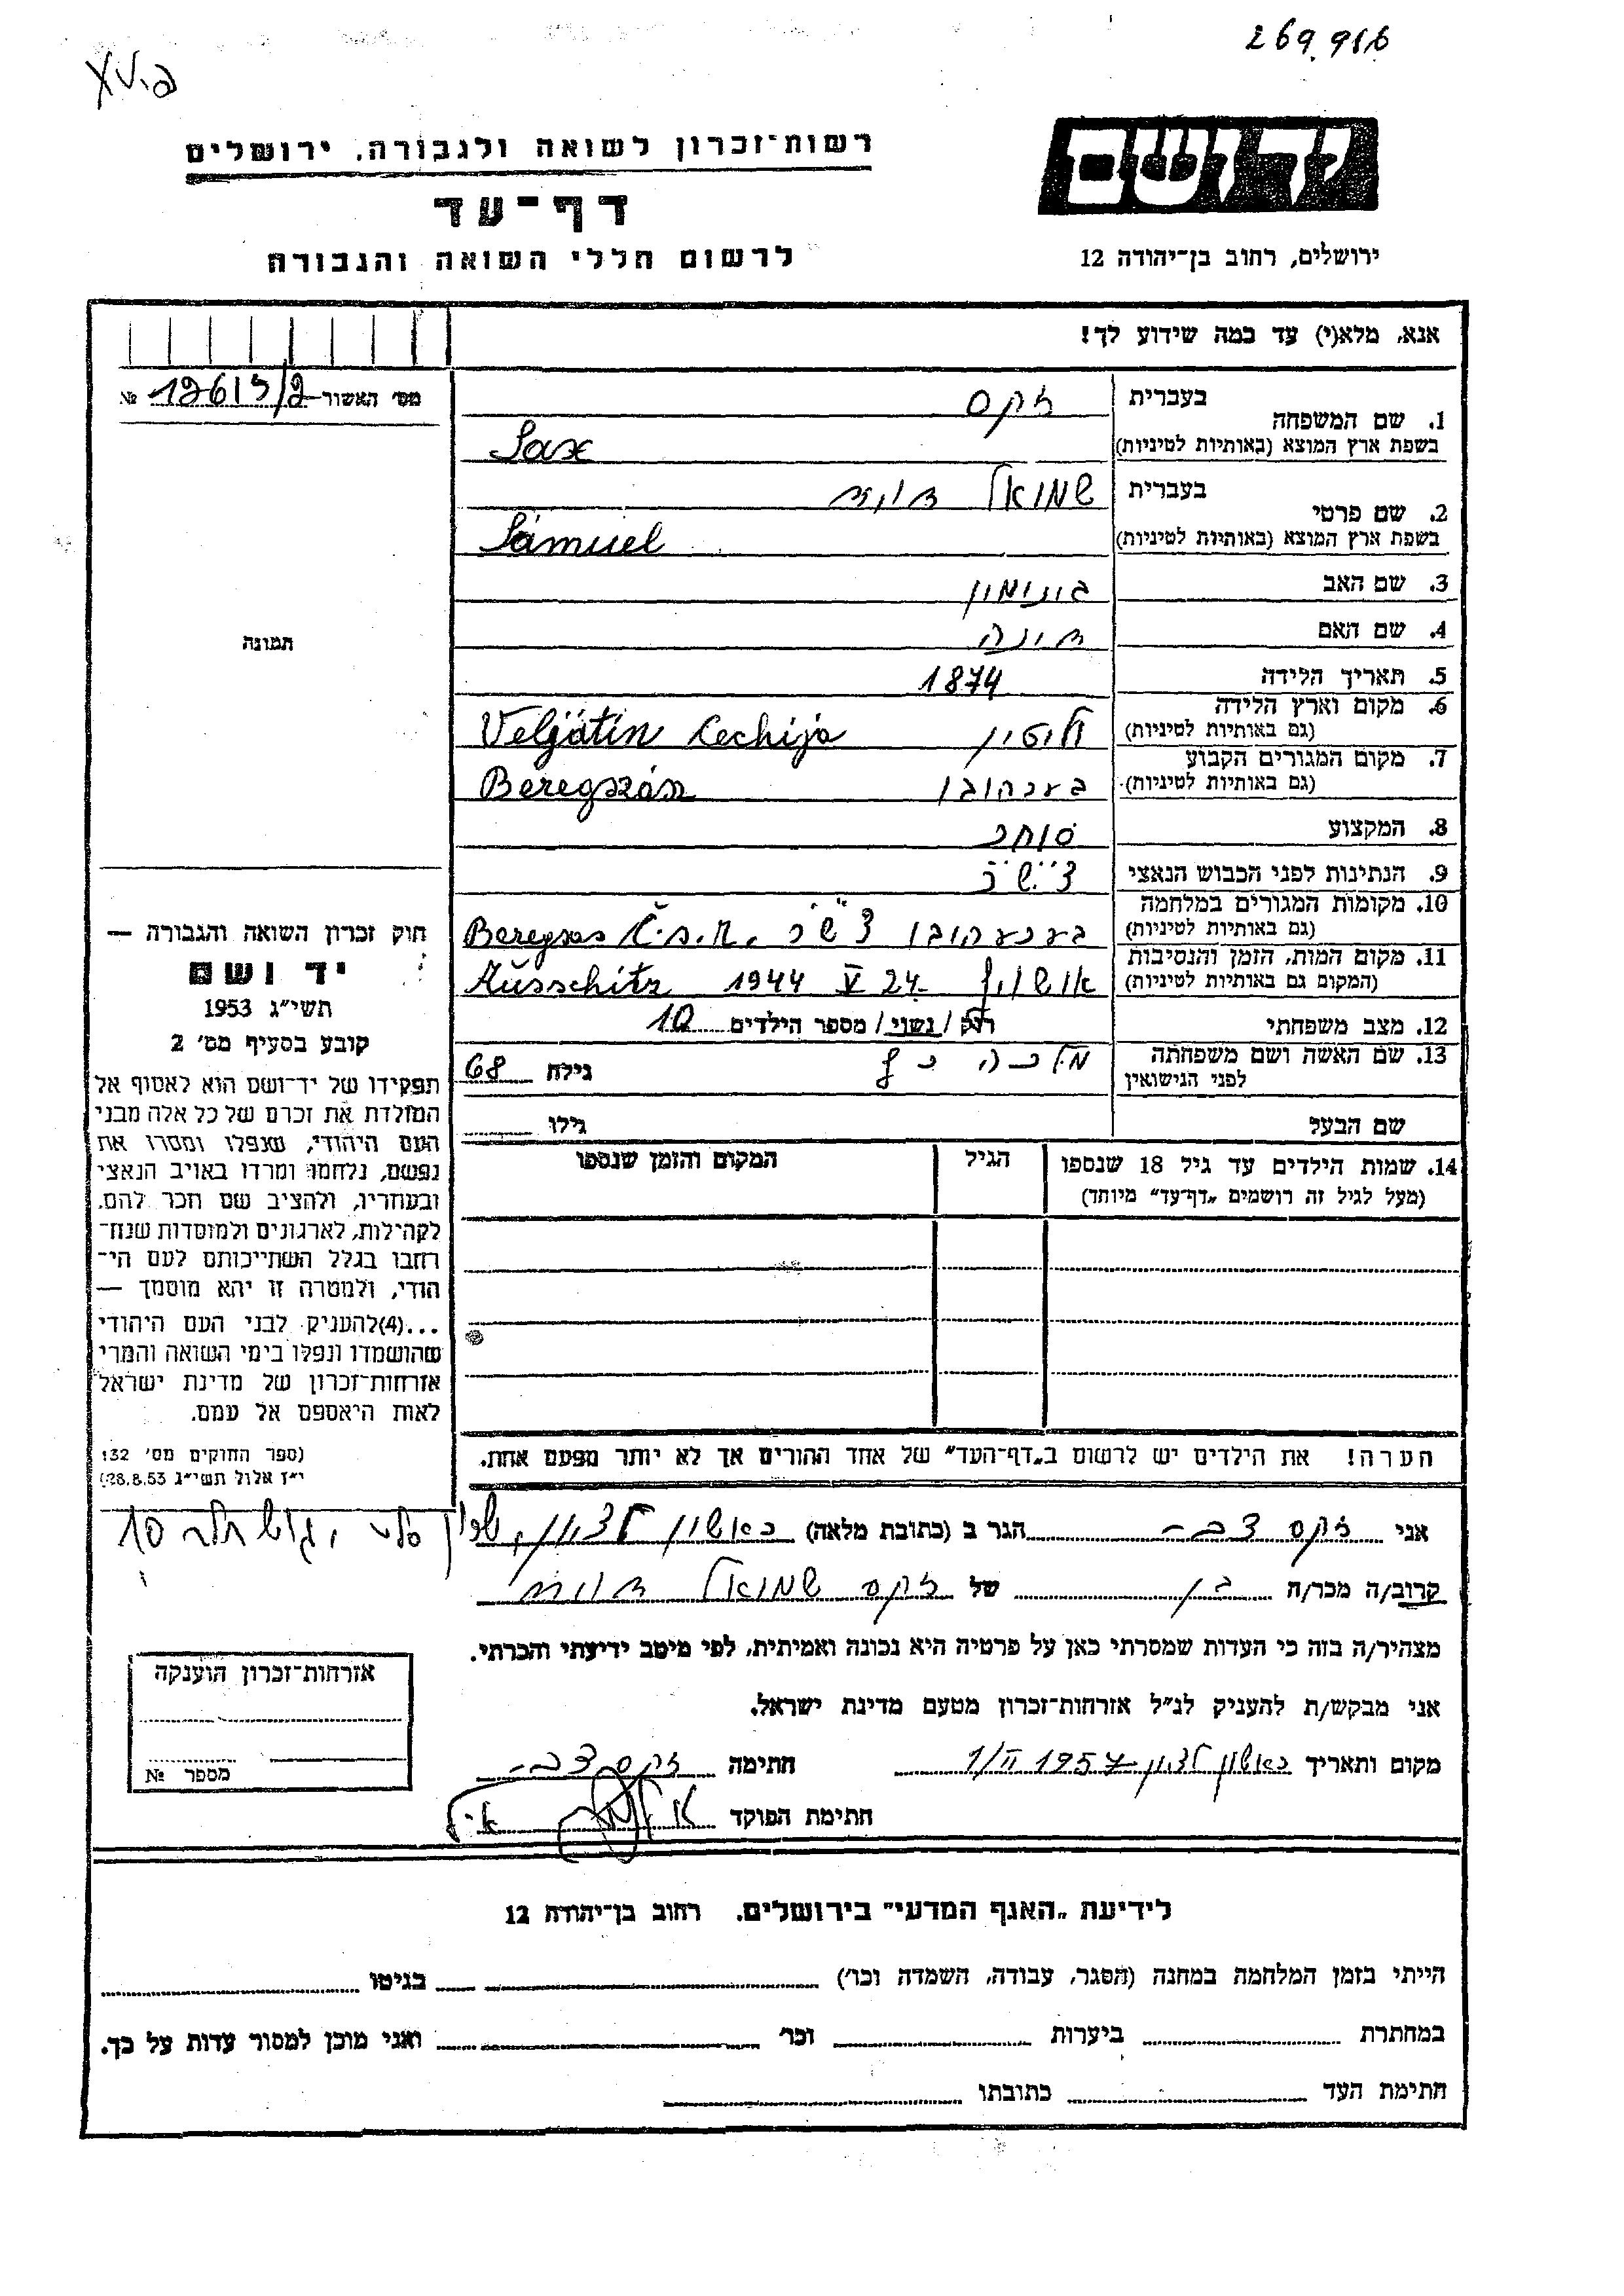 269.916
רשות־זכרון לשואה ולגבורה, ירושלים
דף־עד
לרשום חללי השואה והגבורה
יד ושם
ירושלים, רחוב בן־יהודה 12
אנא, מלא(י) עד כמה שידוע לך!
מס׳ האשור № 12615/2
1. שם המשפחה בעברית זקס
בשפת ארץ המוצא (באותיות לטיניות) Sax
2. שם פרטי בעברית שמואל
בשפת ארץ המוצא (באותיות לטיניות) Sámuel
3. שם האב בנימין
4. שם האם
5. תאריך הלידה 1874
6. מקום וארץ הלידה
(גם באותיות לטיניות) Veljátin Cechija
7. מקום המגורים הקבוע
(גם באותיות לטיניות) Beregszász
8. המקצוע סוחר
9. הנתינות לפני הכבוש הנאצי צ׳׳ש׳ר
10. מקומות המגורים במלחמה
(גם באותיות לטיניות) צ״ש׳ר Beregsas Č.s.R.
11. מקום המות, הזמן והנסיבות
(המקום גם באותיות לטיניות) אושויץ 24 V 1944 Aüsschitz
12. מצב משפחתי רוק / נשוי / מספר הילדים 10
13. שם האשה ושם משפחתה
לפני הנישואין מלכה גילה 68
שם הבעל גילו
14. שמות הילדים עד גיל 18 שנספו
(מעל לגיל זה רושמים „דף־עד״ מיוחד)
הגיל
המקום והזמן שנספו
הערה! את הילדים יש לרשום ב„דף־העד״ של אחד ההורים אך לא יותר מפעם אחת.
תמונה
חוק זכרון השואה והגבורה —
יד ושם
תשי״ג 1953
קובע בסעיף מס׳ 2
תפקידו של יד־ושם הוא לאסוף אל
המולדת את זכרם של כל אלה מבני
העם היהודי, שנפלו ומסרו את
נפשם, נלחמו ומרדו באויב הנאצי
ובעוזריו, ולהציב שם וזכר להם,
לקהילות, לארגונים ולמוסדות שנח־
רבו בגלל השתייכותם לעם הי־
הודי, ולמטרה זו יהא מוסמך —
...(4) להעניק לבני העם היהודי
שהושמדו ונפלו בימי השואה והמרי
אזרחות־זכרון של מדינת ישראל
לאות היאספם אל עמם.
(ספר החוקים מס׳ 132
י״ז אלול תשי״ג 28.8.53)
אני זקס צבי הגר ב (כתובת מלאה) ראשון לציון, 10
קרוב/ה מכר/ה בן של זקס שמואל
מצהיר/ה בזה כי העדות שמסרתי כאן על פרטיה היא נכונה ואמיתית, לפי מיטב ידיעתי והכרתי.
אני מבקש/ת להעניק לנ״ל אזרחות־זכרון מטעם מדינת ישראל.
מקום ותאריך ראשון לציון 1/II 1957 חתימה זקס צבי
חתימת הפוקד
אזרחות־זכרון הוענקה
מספר №
לידיעת „האגף המדעי״ בירושלים. רחוב בן־יהודה 12
הייתי בזמן המלחמה במחנה (הסגר, עבודה, השמדה וכו׳) בגיטו
במחתרת ביערות וכו׳ ואני מוכן למסור עדות על כך.
חתימת העד כתובתו